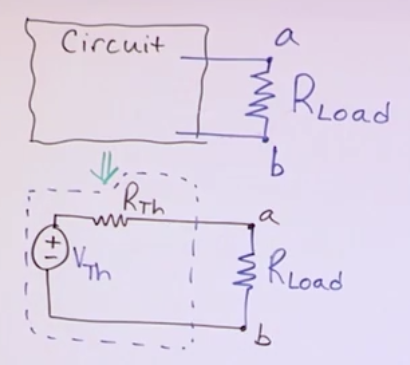 Circuit
a
RLoad
b
RTh
a
+
-
VTh
RLoad
b